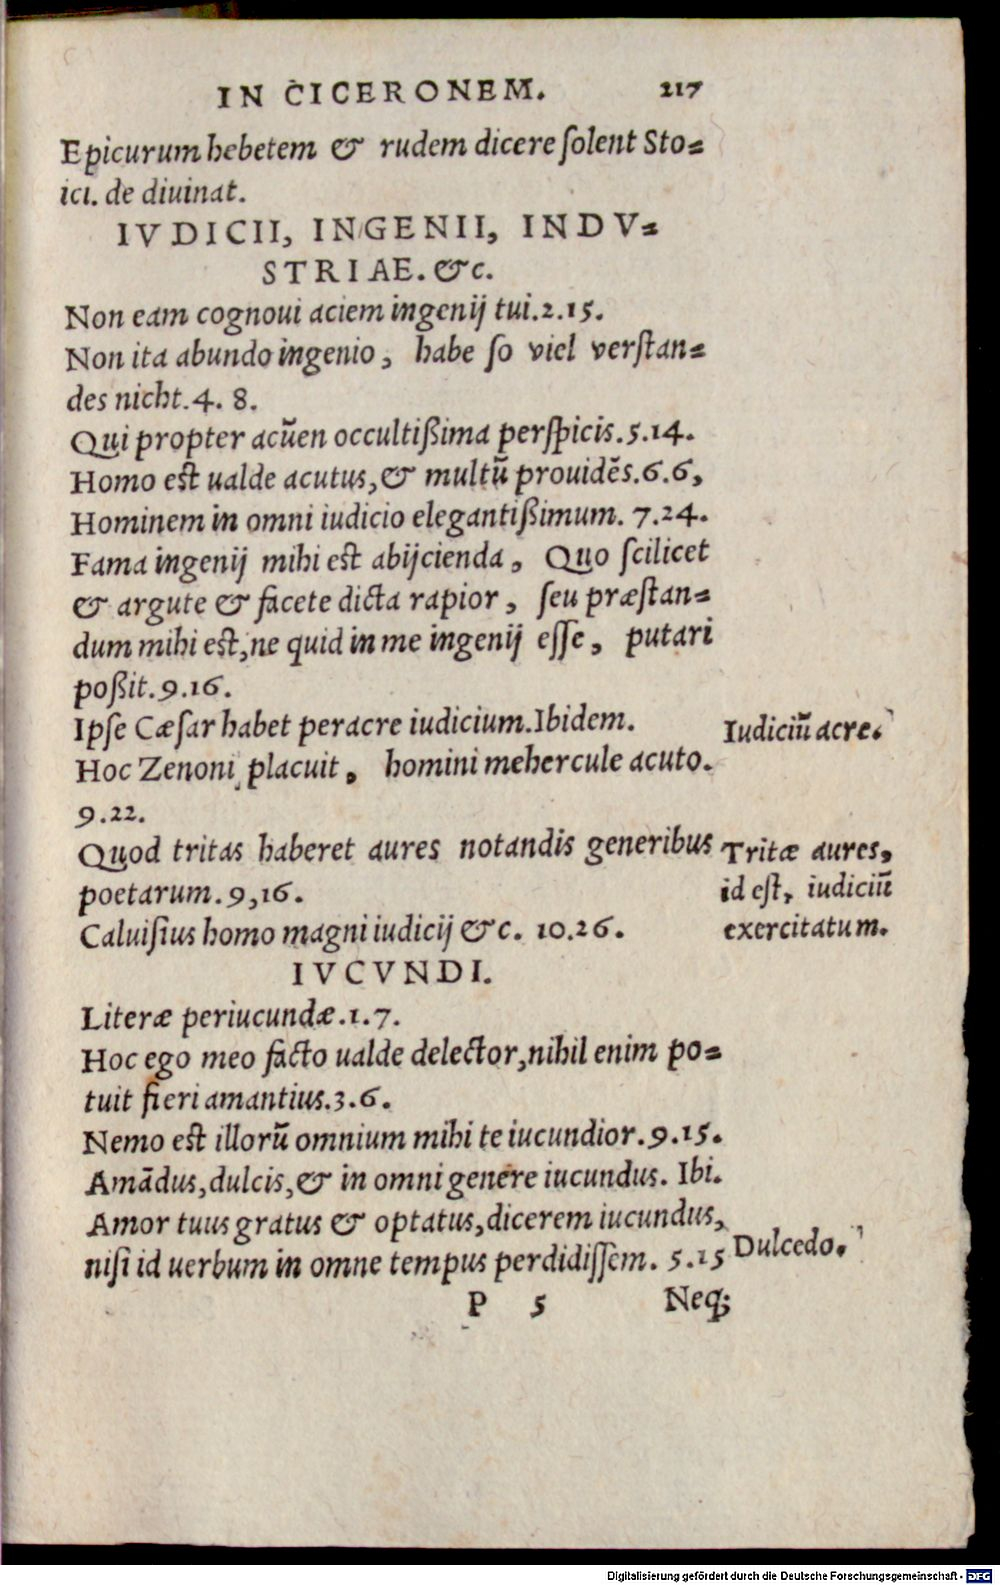 IN CICERONEM. 217
Epicurum hebetem & rudem dicere ſolent Sto=
ici. de diuinat.
IVDICII, INGENII, INDV=
STRIAE. &c.
Non eam cognoui aciem ingenij tui.2.15.
Non ita abundo ingenio, habe ſo viel verſtan=
des nicht.4. 8.
Qui propter acũen occultißima perſpicis.5.14.
Homo est ualde acutus,& multũ prouidẽs.6.6,
Hominem in omni iudicio elegantißimum. 7.24.
Fama ingenij mihi est abijcienda, Quo ſcilicet
& argute & facete dicta rapior, ſeu præſtan=
dum mihi est,ne quid in me ingenij eſſe, putari
poßit.9.16.
Ipſe Cæſar habet peracre iudicium.Ibidem.
Iudiciũ acre.
Hoc Zenoni placuit, homini mehercule acuto.
9.22.
Quod tritas haberet aures notandis generibus
poetarum.9,16.
Tritæ aures,
id eſt, iudiciũ
exercitatum.
Caluiſius homo magni iudicij &c. 10.26.
IVCVNDI.
Literæ periucundæ.1.7.
Hoc ego meo facto ualde delector,nihil enim po=
tuit fieri amantius.3.6.
Nemo est illorũ omnium mihi te iucundior.9.15.
Amãdus,dulcis,& in omni genere iucundus. Ibi.
Amor tuus gratus & optatus,dicerem iucundus,
niſi id uerbum in omne tempus perdidiſſem. 5.15
Dulcedo.
P 5 Neq;
Digitalisierung gefördert durch die Deutsche Forschungsgemeinschaft - DFG